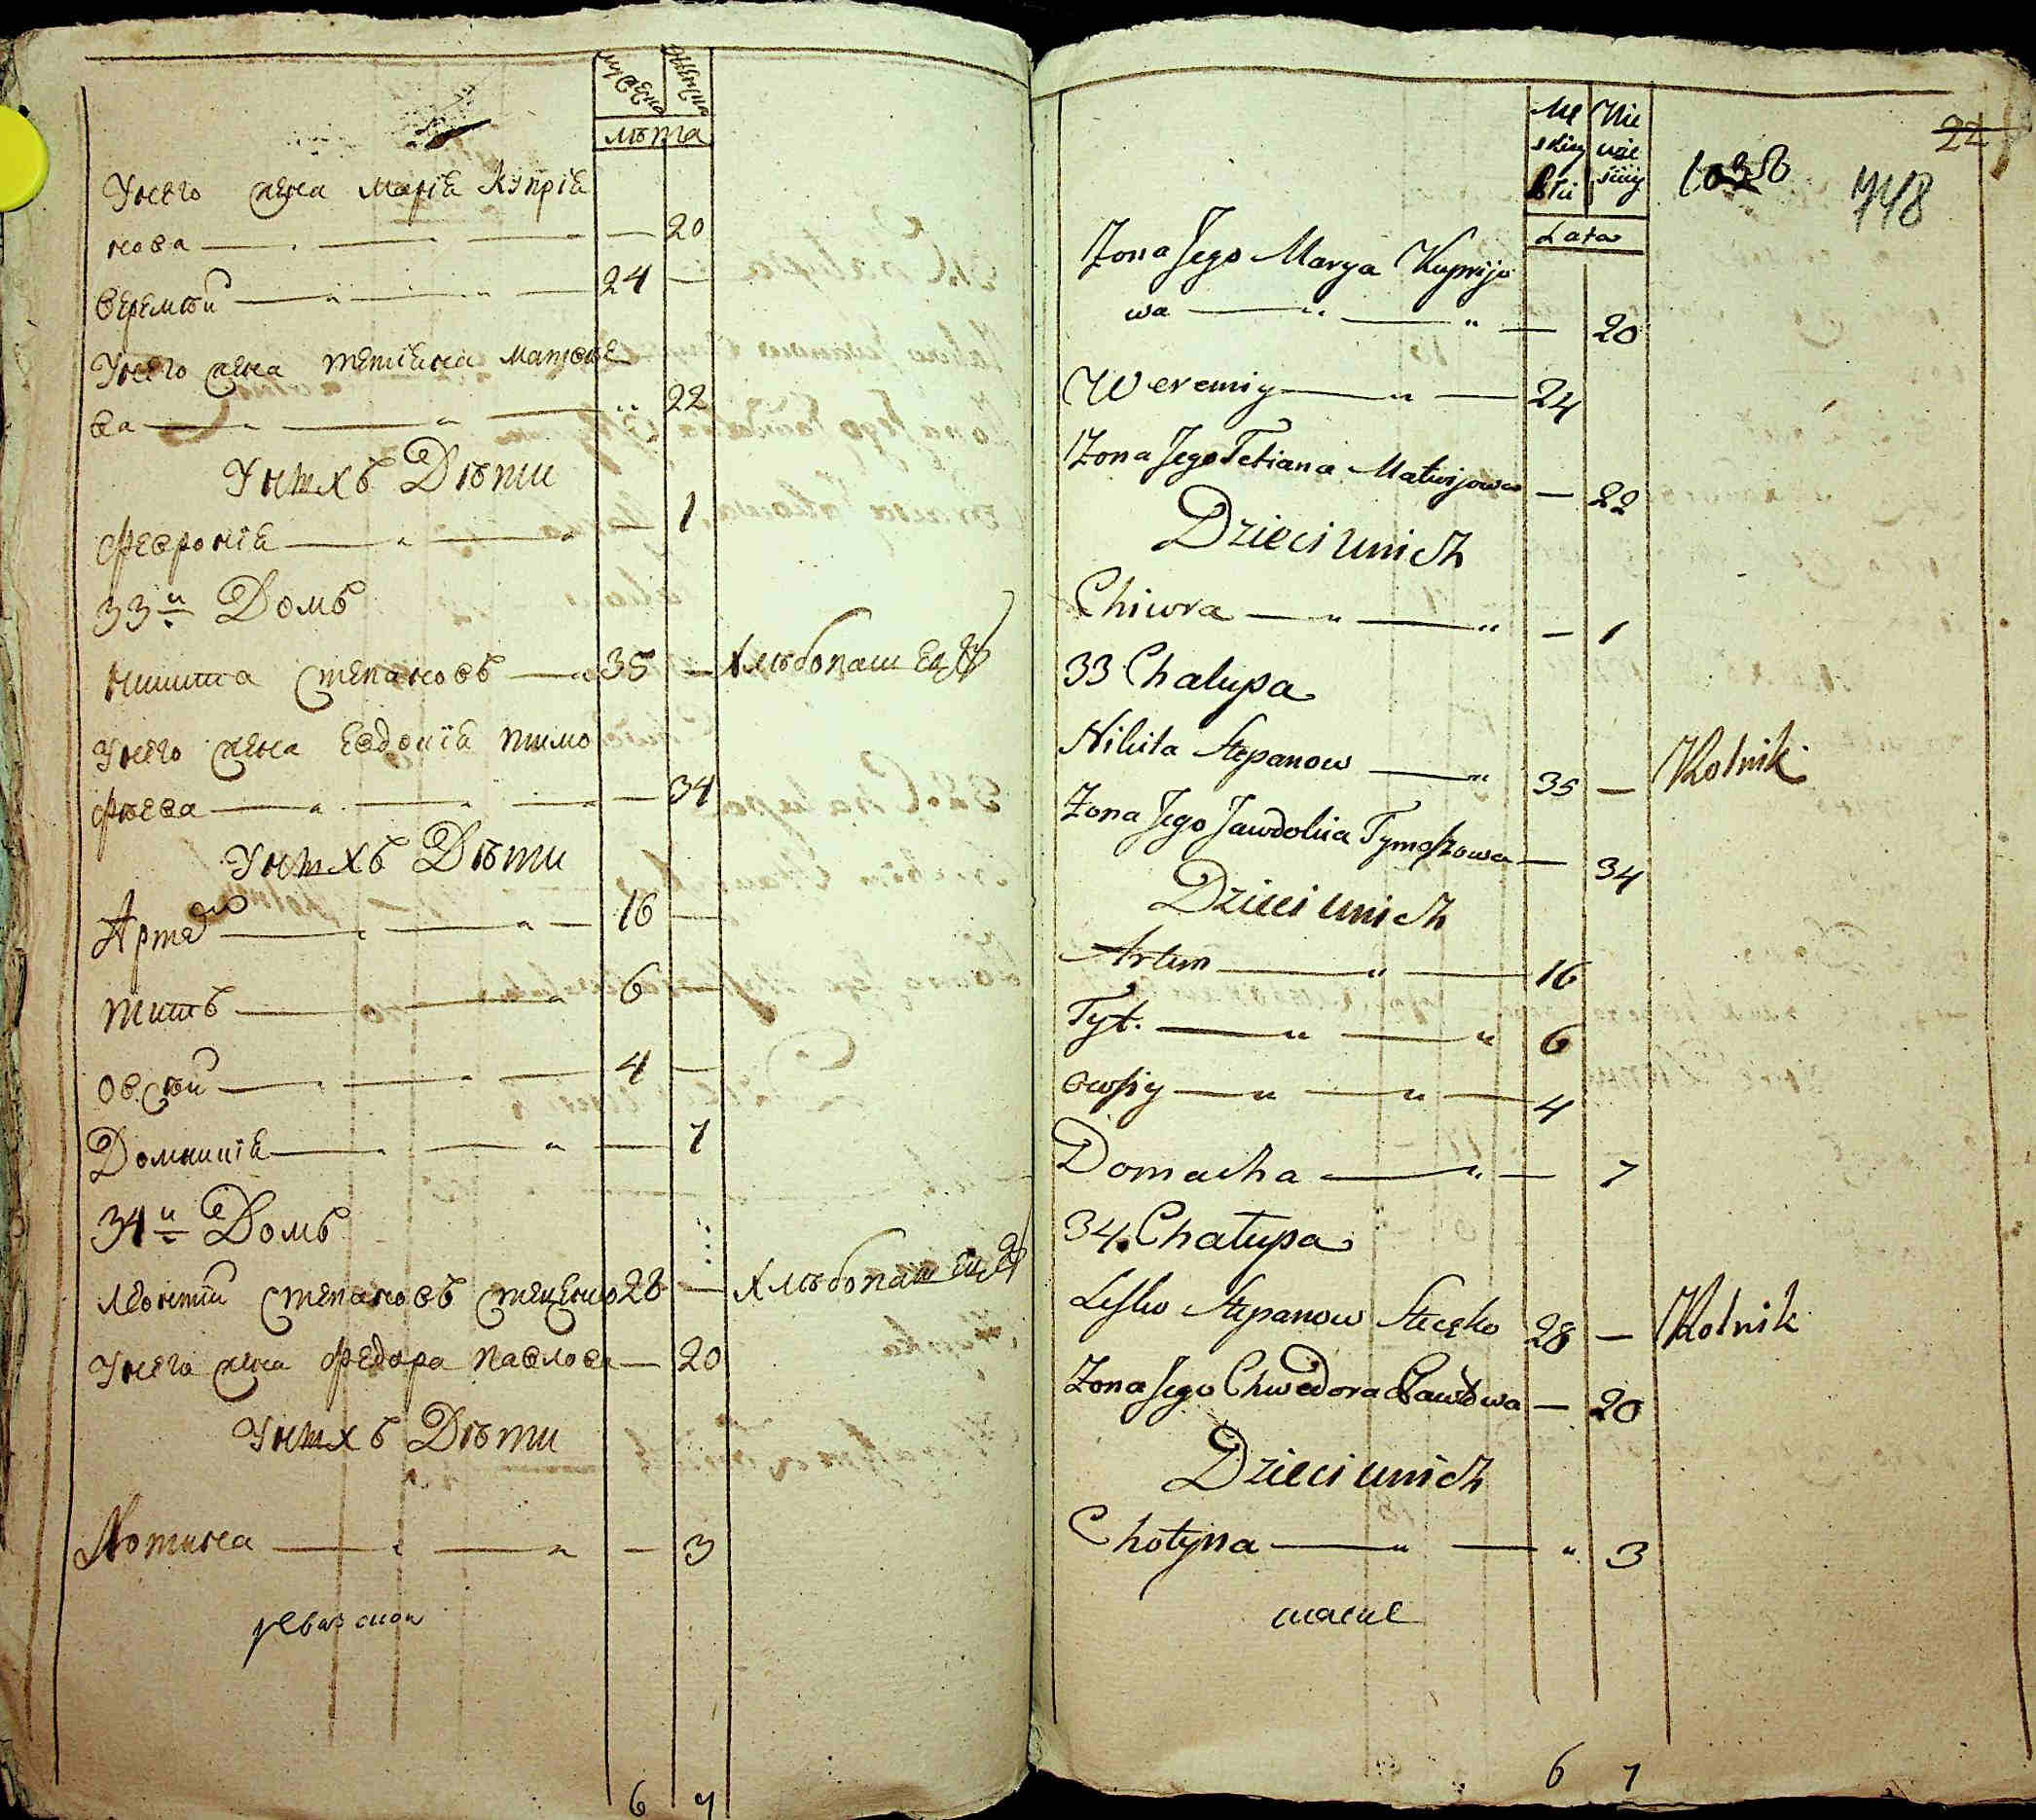 мужеска женска
лѣта
У него жена Марія Купрія
нова — — — — 20
Веремѣй — — — 24 —
У него жена Тетіѧна Матвѣе
ва — — — 22
У нихъ Дѣти
Февронія — — — 1
33й Домъ
Никита Степановъ — 35 — Хлѣбопашецъ
У него жена Евдокія Тимо
фѣева — — — — 34
У нихъ Дѣти
Артемъ — — — 16 —
Титъ — — — 6
Овсѣй — — — 4 —
Домникія — — — 7
34й Домъ
Леонтій Степановъ Стеценко 28 — Хлѣбопашецъ
У него жена Федора Павлова — 20
У нихъ Дѣти
Хотина — — — 3
6 7
22
1038
748
Lata
Żona Jego Marya Kupryjo
wa — — — 20
Weremiy — — 24
Żona Jego Tetiana Matwijowa — 22
Dzieci u nich
Chiwra — — — 1
33 Chalupa
Nikita Stepanow — 35 — Rolnik
Żona Jego Jawdokia Tymoszowa — 34
Dzieci u nich
Artem — — 16
Tyt. — — 6
Owsiy — — — 4
Domacha — — 7
34. Chalupa
Lesko Stepanow Stecko 28 — Rolnik
Żona Jego Chwedora Pawłowa — 20
Dzieci u nich
Chotyna — — 3
6 7